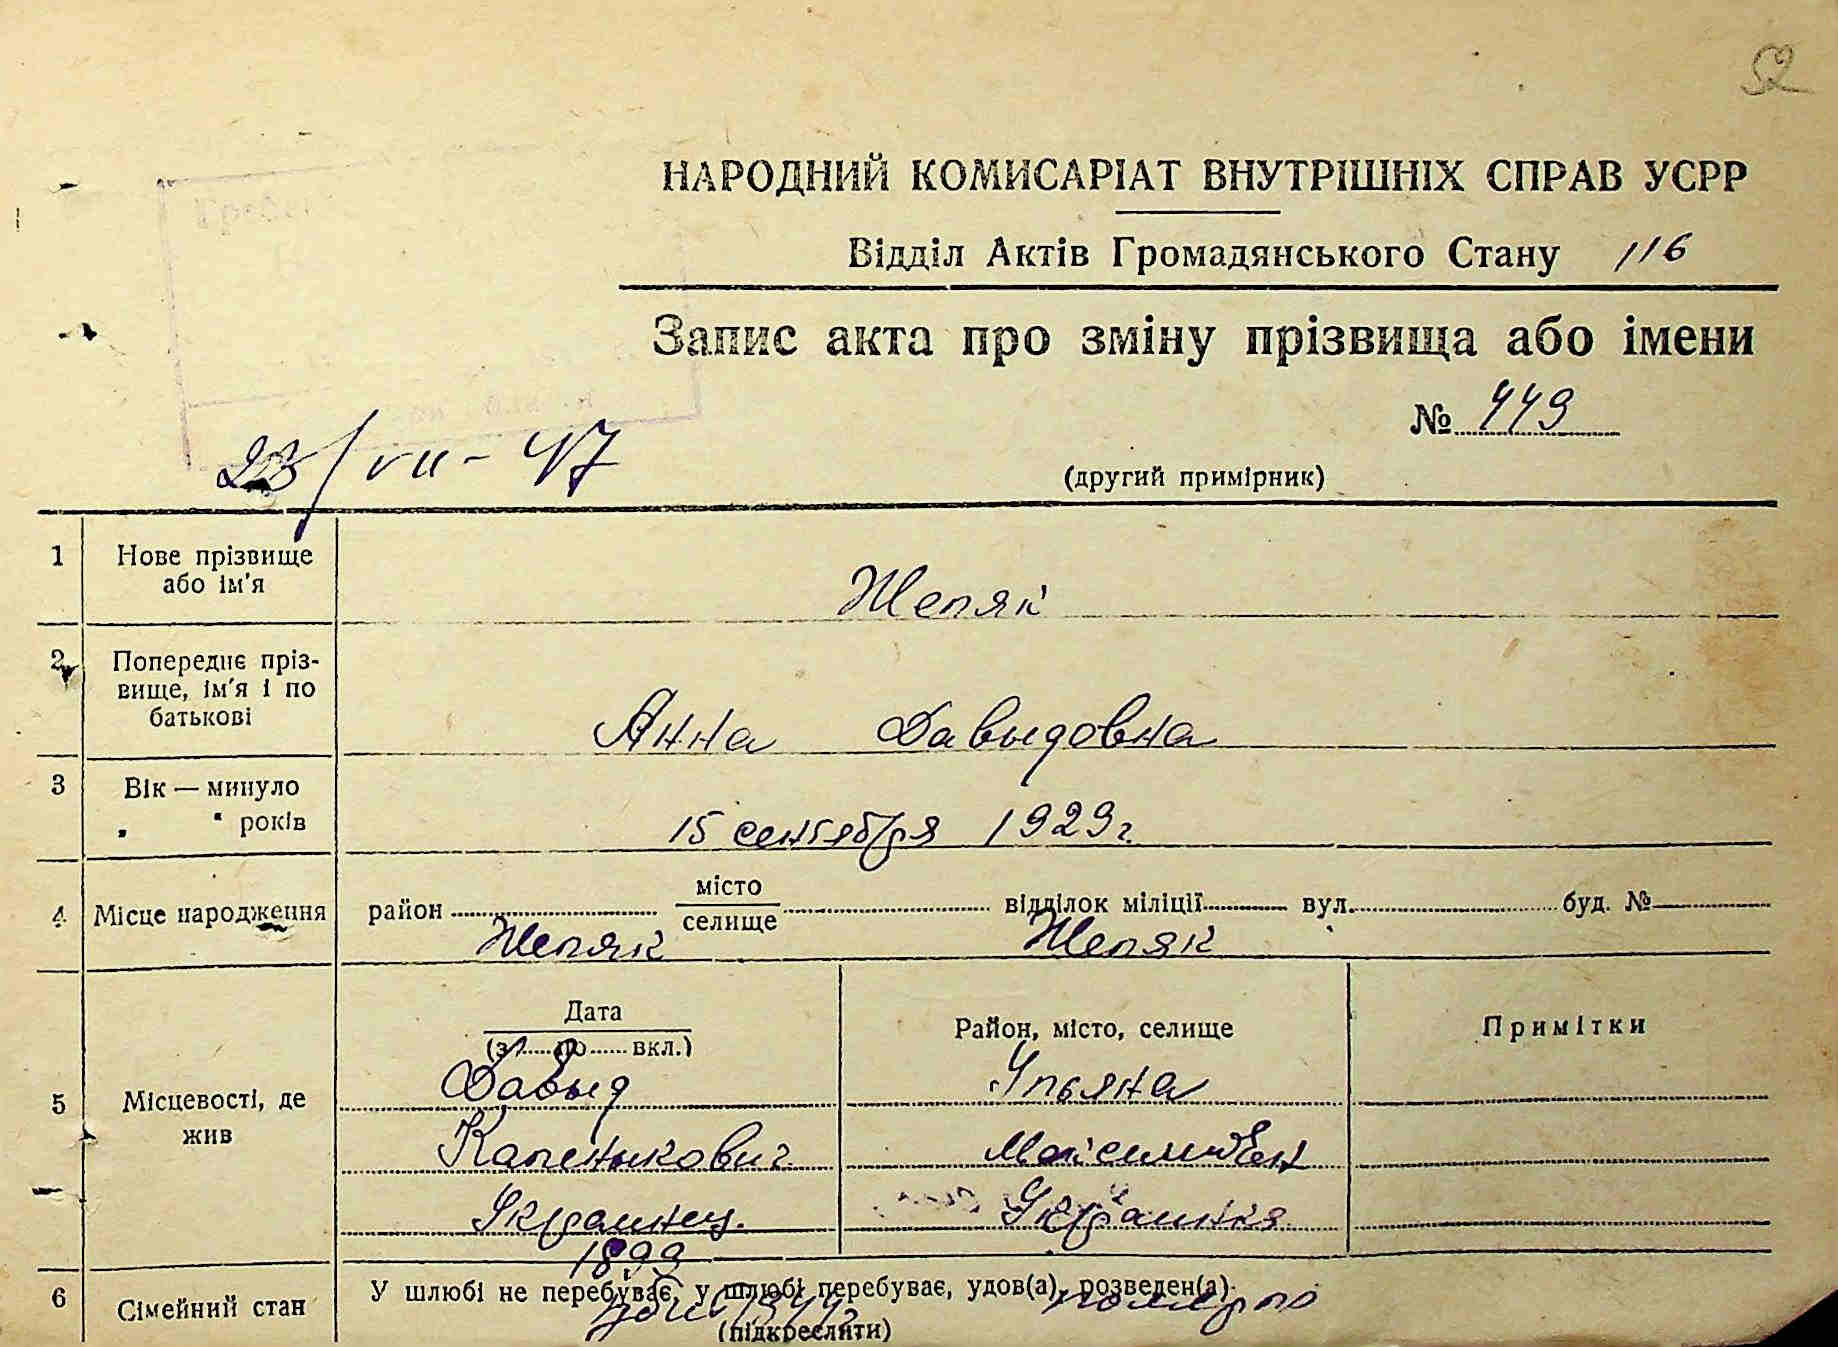 52
НАРОДНИЙ КОМИСАРІАТ ВНУТРІШНІХ СПРАВ УСРР
Відділ Актів Громадянського Стану 116
Запис акта про зміну прізвища або імени
№ 449
(другий примірник)
23/VII-47
1 Нове прізвище або ім'я
Шепяк
2 Попереднє пріз-
вище, ім'я і по
батькові
Анна Давыдовна
3 Вік — минуло
„ " років
15 сентября 1929 г.
4 Місце народження район місто селище відділок міліції вул. буд. №
Шепяк Шепяк
5 Місцевості, де
жив
Дата
(з по вкл.)
Район, місто, селище
Примітки
Давыд Ульяна
Украинец. Украинка
1899
6 Сімейний стан
У шлюбі не перебуває, у шлюбі перебуває, удов(а), розведен(а)
(підкреслити)